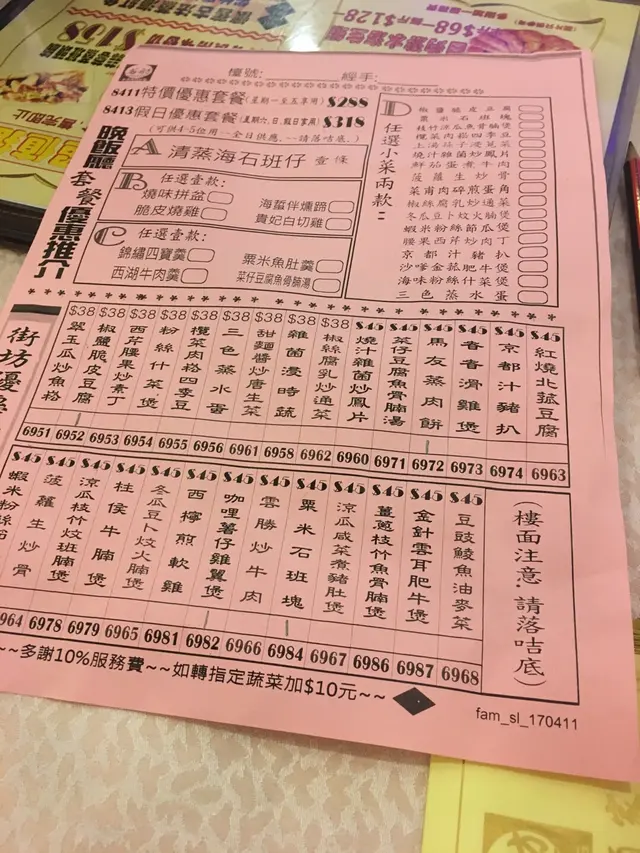 檯號: 經手:
8411特價優惠套餐(星期一至五享用) $288
8413假日優惠套餐(星期六,日,假日享用) $318
(可供4-5位用-全日供應,-請落咭底.)
晚飯廳套餐優惠推介
A 清蒸海石班仔 壹條
B 任選壹款:
燒味拼盆 海蜇伴燻蹄
脆皮燒雞 貴妃白切雞
C 任選壹款:
錦繡四寶羹 粟米魚肚羹
西湖牛肉羹 菜仔豆腐魚骨腩湯
D 任選小菜兩款:
椒鹽脆皮豆腐
粟米石班塊
欖菜肉崧四季豆
燒汁雜菌炒鳳片
菠蘿生炒骨
菜甫肉碎煎蛋角
椒絲腐乳炒通菜
冬瓜豆卜炆火腩煲
蝦米粉絲節瓜煲
腰果西芹炒肉丁
京都汁豬扒
沙嗲金菰肥牛煲
海味粉絲什菜煲
三色蒸水蛋
$38 翠玉瓜炒魚崧 6951
$38 椒鹽脆皮豆腐 6952
$38 西芹腰果炒素丁 6953
$38 粉絲什菜煲 6954
$38 欖菜肉崧四季豆 6955
$38 三色蒸水蛋 6956
$38 甜麵醬炒唐生菜 6961
$38 雜菌浸時蔬 6958
$38 椒絲腐乳炒通菜 6962
$45 燒汁雜菌炒鳳片 6960
$45 菜仔豆腐魚骨腩湯 6971
$45 馬友蒸肉餅 6972
$45 者者滑雞煲 6973
$45 京都汁豬扒 6974
$45 紅燒北菰豆腐 6963
街坊優
$45 蝦米粉絲 964
$45 菠蘿生炒骨 6978
$45 涼瓜枝竹炆班腩煲 6979
$45 柱侯牛腩煲 6965
$45 冬瓜豆卜炆火腩煲 6981
$45 西檸煎軟雞 6982
$45 咖哩薯仔雞翼煲 6966
$45 雲勝炒牛肉 6984
$45 粟米石班塊 6967
$45 涼瓜咸菜煮豬肚煲 6986
$45 薑蔥枝竹魚骨腩煲 6987
$45 金針雲耳肥牛煲 6968
$45 豆豉鯪魚油麥菜
(樓面注意.請落咭底)
~~多謝10%服務費~~如轉指定蔬菜加$10元~~
fam_sl_170411
$168
$68 $128